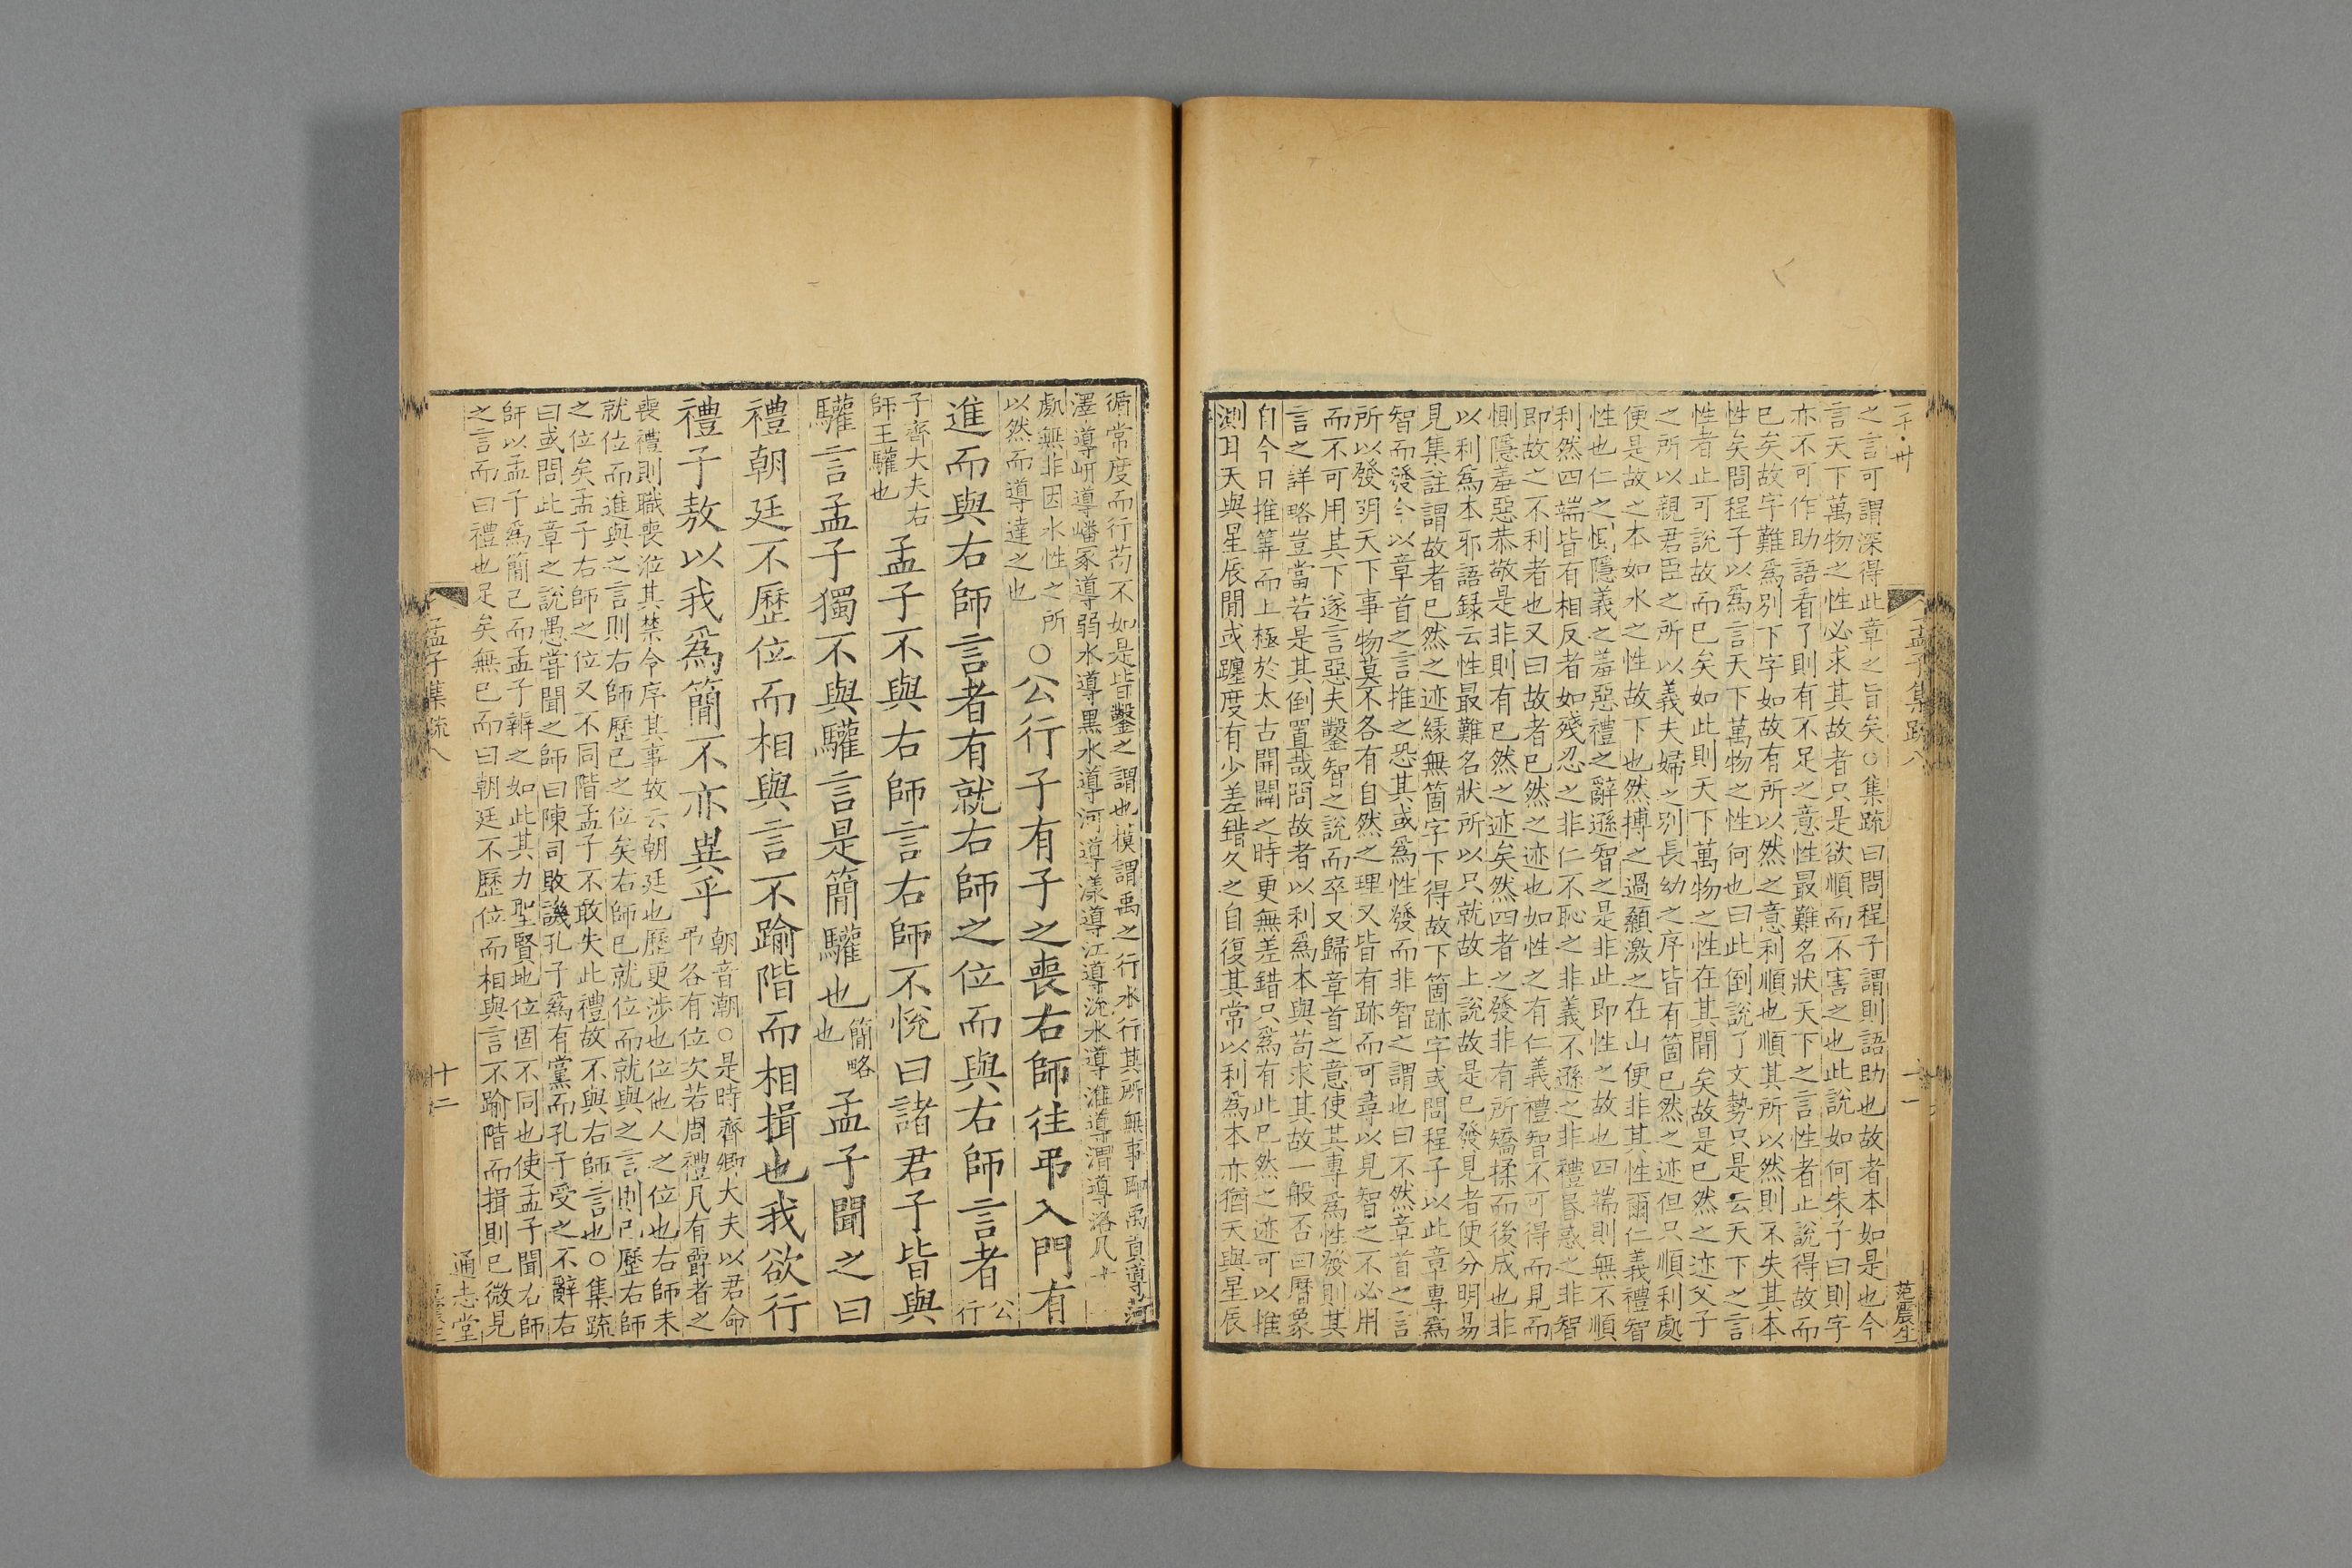 孟子集疏八
范震生
之言可謂深得此章之旨矣○集疏曰問程子謂則語助也故者本如是也今
言天下萬物之性必求其故者只是欲順而不害之也此說如何朱子曰則字
亦不可作助語看了則有不足之意性最難名狀天下之言性者止說得故而
已矣故字難爲別下字如故有所以然之意利順也順其所以然則不失其本
性矣問程子以爲言天下萬物之性何也曰此倒說了文勢只是云天下之言
性者止可說故而已矣如此則天下萬物之性在其閒矣故是已然之迹父子
之所以親君臣之所以義夫婦之別長幼之序皆有箇已然之迹但只順利處
便是故之本如水之性故下也然搏之過顙激之在山便非其性爾仁義禮智
性也仁之惻隱義之羞惡禮之辭遜智之是非此即性之故也四端則無不順
利然四端皆有相反者如殘忍之非仁不恥之非義不遜之非禮昬惑之非智
即故之不利者也又曰故者已然之迹也如性之有仁義禮智不可得而見而
惻隱羞惡恭敬是非則有已然之迹矣然四者之發非有所矯揉而後成也非
以利爲本邪語録云性最難名狀所以只就故上說故是已發見者便分明易
見集註謂故者已然之迹緣無箇字下得故下箇跡字或問程子以此章專爲
智而發今以章首之言推之恐其或爲性發而非智之謂也曰不然章首之言
所以發明天下事物莫不各有自然之理又皆有跡而可尋以見智之不必用
而不可用其下遂言惡夫鑿智之說而卒又歸章首之意使其專爲性發則其
言之詳略豈當若是其倒置哉問故者以利爲本與苟求其故一般否曰曆象
自今日推筭而上極於太古開闢之時更無差錯只爲有此已然之迹可以推
測耳天與星辰閒或躔度有少差錯久之自復其常以利爲本亦猶天與星辰
循常度而行苟不如是皆鑿之謂也模謂禹之行水行其所無事即禹貢導菏
澤導岍導嶓冢導弱水導黑水導河導漾導江導沇水導淮導渭導洛凡
處無非因水性之所
以然而導達之也
○公行子有子之喪右師往弔入門有
進而與右師言者有就右師之位而與右師言者
公行
子齊大夫右
師王驩也
孟子不與右師言右師不悅曰諸君子皆與
驩言孟子獨不與驩言是簡驩也
簡略
也
孟子聞之曰
禮朝廷不歷位而相與言不踰階而相揖也我欲行
禮子敖以我爲簡不亦異乎
朝音潮○是時齊卿大夫以君命
弔各有位次若周禮凡有爵者之
喪禮則職喪涖其禁令序其事故云朝廷也歷更涉也位他人之位也右師未
就位而進與之言則右師歷已之位矣右師已就位而就與之言則已歷右師
之位矣孟子右師之位又不同階孟子不敢失此禮故不與右師言也○集疏
曰或問此章之說愚嘗聞之師曰陳司敗譏孔子爲有黨而孔子受之不辭右
師以孟子爲簡已而孟子辨之如此其力聖賢地位固不同也使孟子聞右師
之言而曰禮也足矣無已而曰朝廷不歷位而相與言不踰階而揖則已微見
孟子集疏八
十二
通志堂